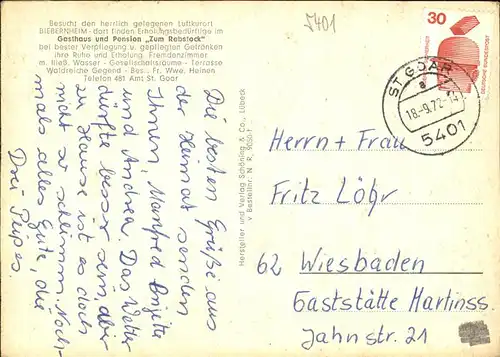 Besucht den herrlich gelegenen Luftkurort
BIEBERNHEIM - dort finden Erholungsbedürftige im
Gasthaus und Pension „Zum Rebstock"
bei bester Verpflegung u. gepflegten Getränken
ihre Ruhe und Erholung. Fremdenzimmer
m. fließ. Wasser - Gesellschaftsräume - Terrasse
Waldreiche Gegend - Bes.: Fr. Wwe. Heinen
Telefon 481 Amt St. Goar
Die besten Grüße aus
der Heimat senden
Ihnen, Manfred Brigitte
und Andrea. Das Wetter
dürfte besser sein, aber
zu Hause ist es doch
nicht so schlimm. Noch-
mals alles Gute, die
Drei Pupes.
Hersteller und Verlag Schöning & Co., Lübeck
Bestellnr. N. R.
5401
30
DEUTSCHE BUNDESPOST
ST GOAR 1
a
18.-9.72-14
5401
Herrn + Frau
Fritz Löhr
62 Wiesbaden
Gaststätte Hartinss
Jahnstr. 21